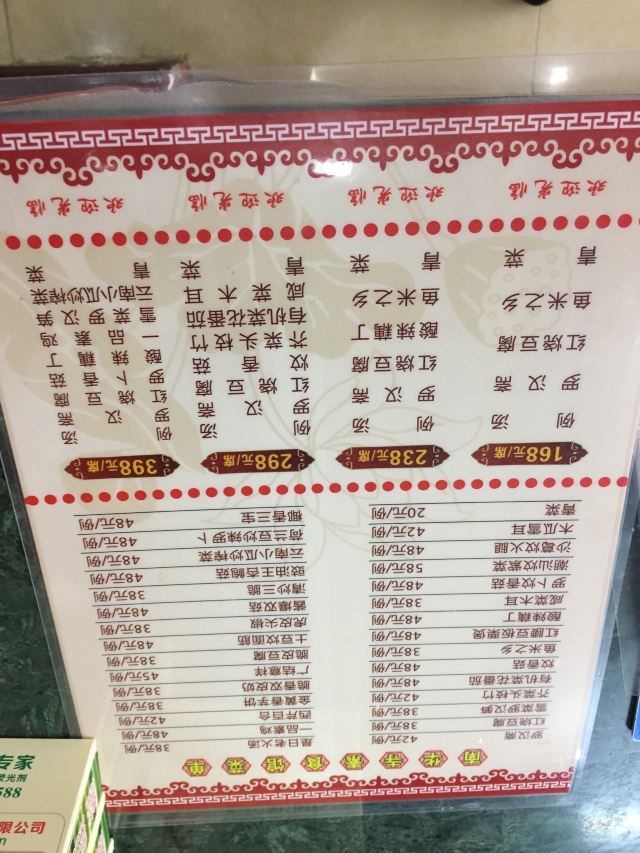 南华寺素食馆菜单
罗汉斋 42元/例
红烧豆腐 38元/例
雪菜罗汉笋 38元/例
芥菜头枝竹 42元/例
有机菜花番茄 48元/例
炆香菇 48元/例
鱼米之乡 38元/例
红腰豆板栗煲 48元/例
酸辣藕丁 48元/例
咸菜木耳 38元/例
萝卜炆香菇 48元/例
潮汕炆紫菜 58元/例
沙葛炆火腿 48元/例
木瓜雪耳 42元/例
青菜 20元/例
是日老火汤 38元/例
一品素鸡 48元/例
西芹百合 42元/例
金黄香芋饼 38元/例
脆香双皮奶 38元/例
广结慈祥 45元/例
脆皮豆腐 38元/例
土豆炆面筋 42元/例
虎皮尖椒 38元/例
酱爆双菇 48元/例
清炒三脆 48元/例
豉油王杏鲍菇 48元/例
云南小瓜炒榨菜 48元/例
荷兰豆炒辣萝卜 48元/例
椰香三宝 48元/例
168元/席
例汤
罗汉斋
红烧豆腐
鱼米之乡
青菜
238元/席
例汤
罗汉斋
红烧豆腐
酸辣藕丁
鱼米之乡
青菜
298元/席
例汤
罗汉斋
红烧豆腐
炆香菇
芥菜头枝竹
有机菜花番茄
咸菜木耳
青菜
398元/席
例汤
罗汉斋
红烧豆腐
萝卜香菇
酸辣藕丁
一品素鸡
雪菜罗汉笋
云南小瓜炒榨菜
青菜
欢迎光临 欢迎光临 欢迎光临 欢迎光临
专家
荧光剂
588
限公司